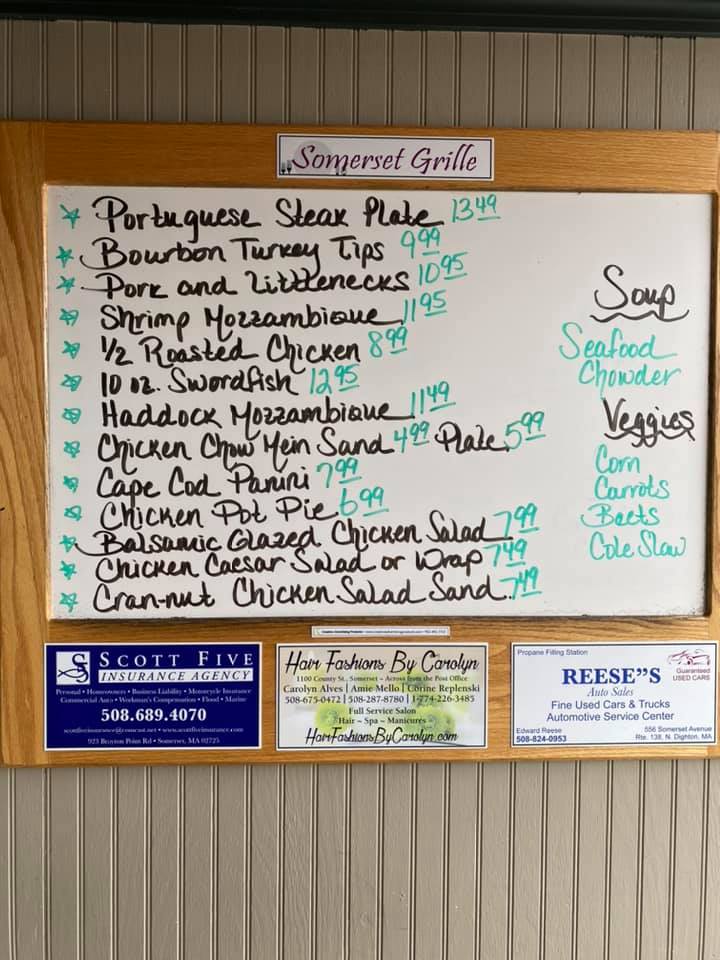 Somerset Grille
Portuguese Steak Plate 13.49
Bourbon Turkey Tips 9.99
Pork and Littlenecks 10.95
Shrimp Mozzambique 11.95
1/2 Roasted Chicken 8.99
10 oz. Swordfish 12.95
Haddock Mozzambique 11.49
Chicken Chow Mein Sand 4.99 Plate 5.99
Cape Cod Panini 7.99
Chicken Pot Pie 6.99
Balsamic Glazed Chicken Salad 7.99
Chicken Caesar Salad or Wrap 7.49
Cran-nut Chicken Salad Sand. 7.49
Soup
Seafood
Chowder
Veggies
Corn
Carrots
Beets
Cole Slaw
SCOTT FIVE
INSURANCE AGENCY
Personal • Homeowners • Business Liability • Motorcycle Insurance
Commercial Auto • Workman's Compensation • Flood • Marine
508.689.4070
scottfiveinsurance@comcast.net • www.scottfiveinsurance.com
923 Brayton Point Rd • Somerset, MA 02725
Hair Fashions By Carolyn
1100 County St., Somerset - Across from the Post Office
Carolyn Alves | Amie Mello | Corine Replenski
508-675-0472 | 508-287-8780 | 1-774-226-3485
Full Service Salon
Hair ~ Spa ~ Manicures
HairFashionsByCarolyn.com
Propane Filling Station
Guaranteed
USED CARS
REESE"S
Auto Sales
Fine Used Cars & Trucks
Automotive Service Center
Edward Reese
508-824-0953
556 Somerset Avenue
Rte. 138, N. Dighton, MA